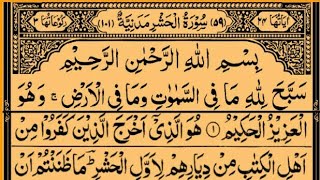 اٰيَاتُهَا ٢٤ (٥٩) سُوْرَةُ الْحَشْرِ مَدَنِيَّةٌ (١٠١) رُكُوْعَاتُهَا ٣
بِسْمِ اللهِ الرَّحْمٰنِ الرَّحِيْمِ
سَبَّحَ لِلّٰهِ مَا فِي السَّمٰوٰتِ وَمَا فِي الْاَرْضِ ۚ وَهُوَ
الْعَزِيْزُ الْحَكِيْمُ ① هُوَ الَّذِيْٓ اَخْرَجَ الَّذِيْنَ كَفَرُوْا مِنْ
اَهْلِ الْكِتٰبِ مِنْ دِيَارِهِمْ لِاَوَّلِ الْحَشْرِ ؕ مَا ظَنَنْتُمْ اَنْ